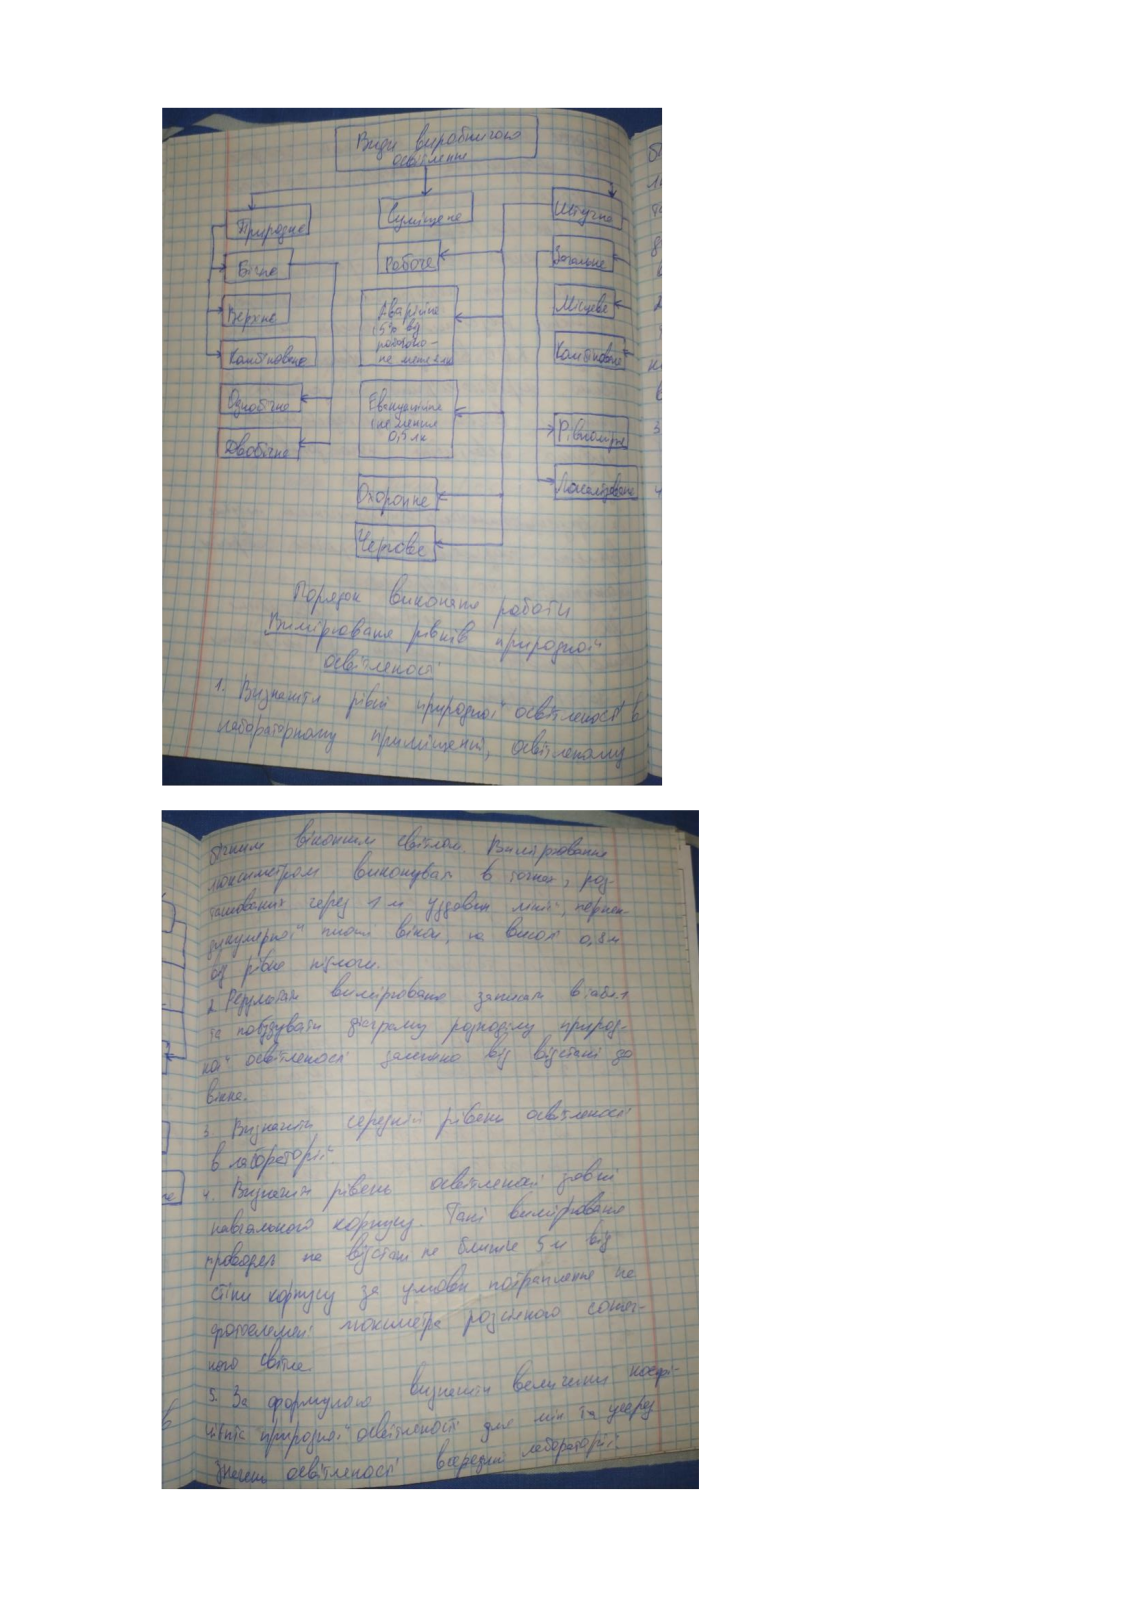 Види виробничого
освітлення
Природне
Суміщене
Штучне
Бічне
Робоче
Загальне
Верхнє
Аварійне
5% від
робочого -
не менше
Місцеве
Комбіноване
Комбіноване
Однобічне
Евакуаційне
не менше
0,5 лк
Рівномірне
Двобічне
Охоронне
Локалізоване
Чергове
Порядок виконання роботи
Вимірювання рівнів природної
освітленості
1. Визначити рівні природної освітленості в
лабораторному приміщенні, освітленому
бічним віконним світлом. Вимірювання
люксметром виконувати в точках, роз-
ташованих через 1 м уздовж лінії, перпен-
дикулярної площі вікон, на висоті 0,8 м
від рівня підлоги.
2. Результати вимірювання записати в табл.1
та побудувати діаграму розподілу природ-
ної освітленості залежно від відстані до
вікна.
3. Визначити середній рівень освітленості
в лабораторії.
4. Визначити рівень освітленості зовні
навчального корпусу. Такі вимірювання
проводять на відстані не ближче 5 м від
стіни корпусу за умови потрапляння на
фотоелемент люксметра розсіяного соняч-
ного світла.
5. За формулою визначити величини коефі-
цієнтів природної освітленості для мін та усеред
значень освітленості всередині лабораторії.